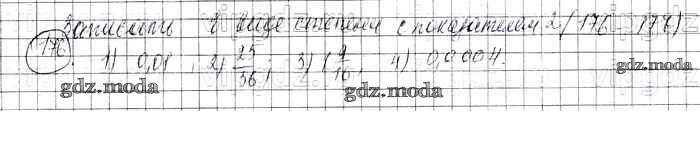 Записать в виде степени с показателем 2 (176, 178)
176. 1) 0,01 2) 25/36; 3) 1 9/16; 4) 0,0004.
gdz.moda gdz.moda gdz.moda